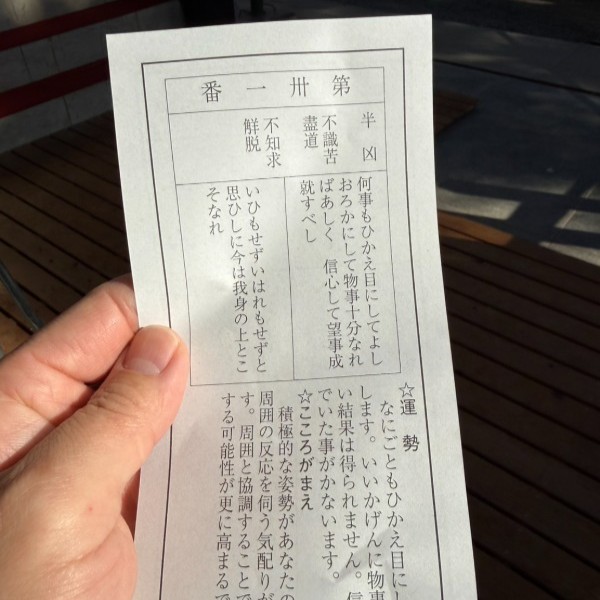 第卅一番
半 凶
不識苦
盡道
不知求
鮮脱
何事もひかえ目にしてよし
おろかにして物事十分なれ
ばあしく 信心して望事成
就すべし
いひもせずいはれもせずと
思ひしに今は我身の上とこ
そなれ
☆運 勢
なにごともひかえ目にし
します。いいかげんに物事
い結果は得られません。信
でいた事がかないます。
☆こころがまえ
積極的な姿勢があなたの
周囲の反応を伺う気配りが
す。周囲と協調することで
する可能性が更に高まるで